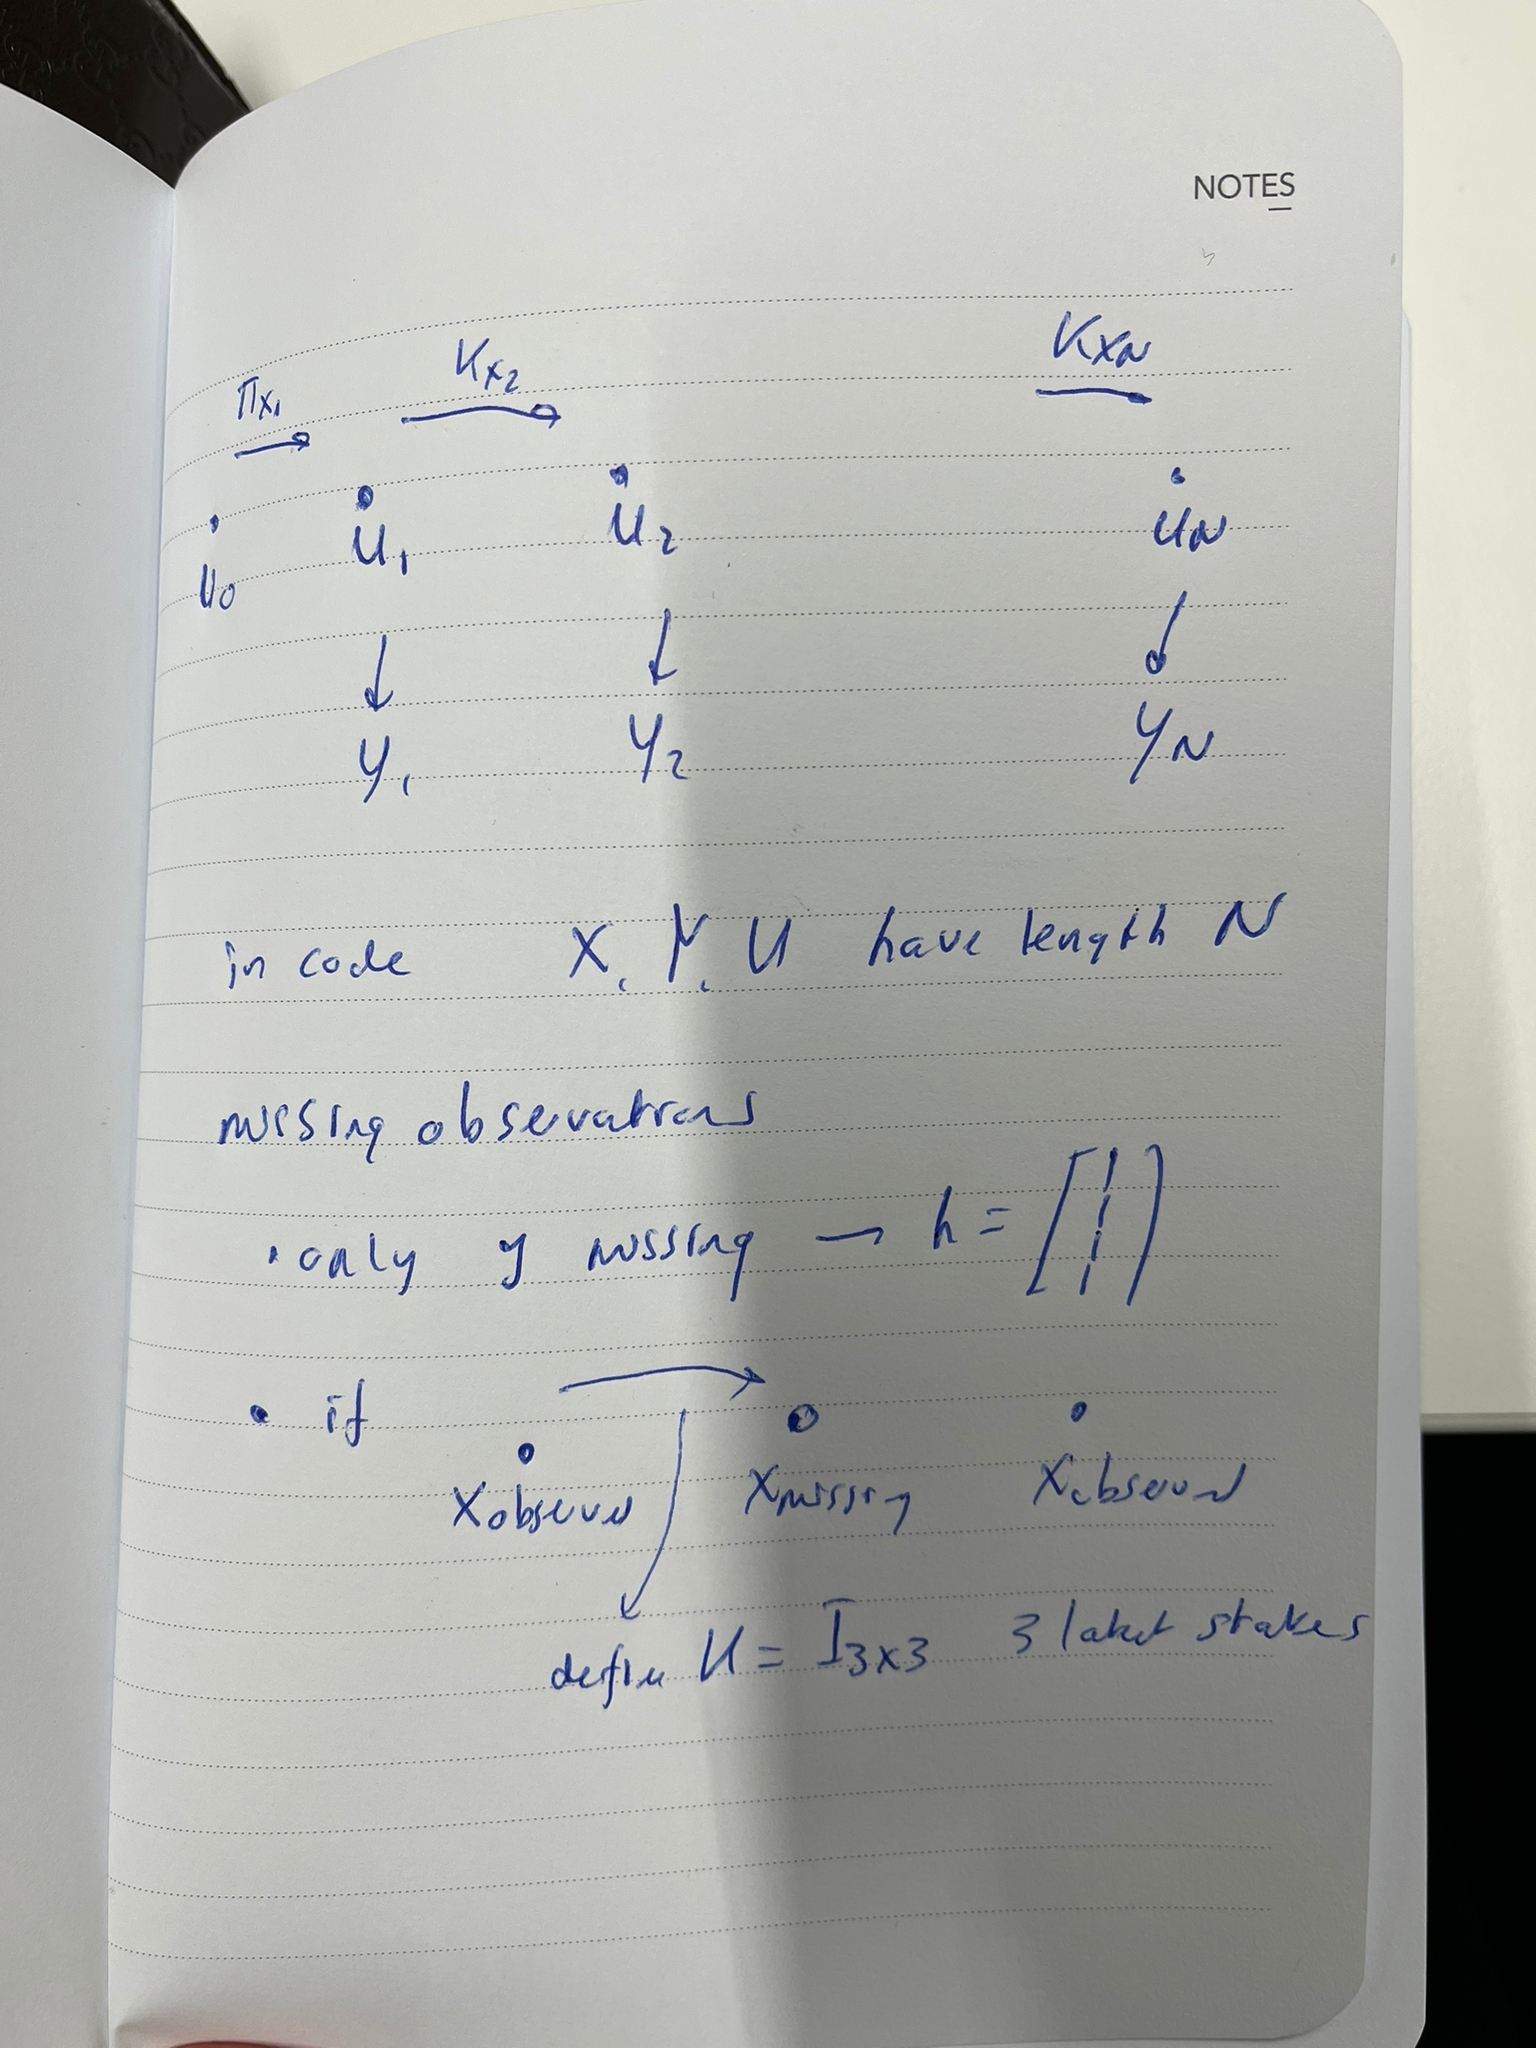 NOTES
πx₁ Kx₂ KxN
u₀ u₁ u₂ uN
y₁ y₂ yN
in code X, Y, U have length N
missing observations
• only y missing → h = [1 1 1 1]
• if
Xobserved Xmissing Xobserved
define K = I₃ₓ₃ 3 latent states